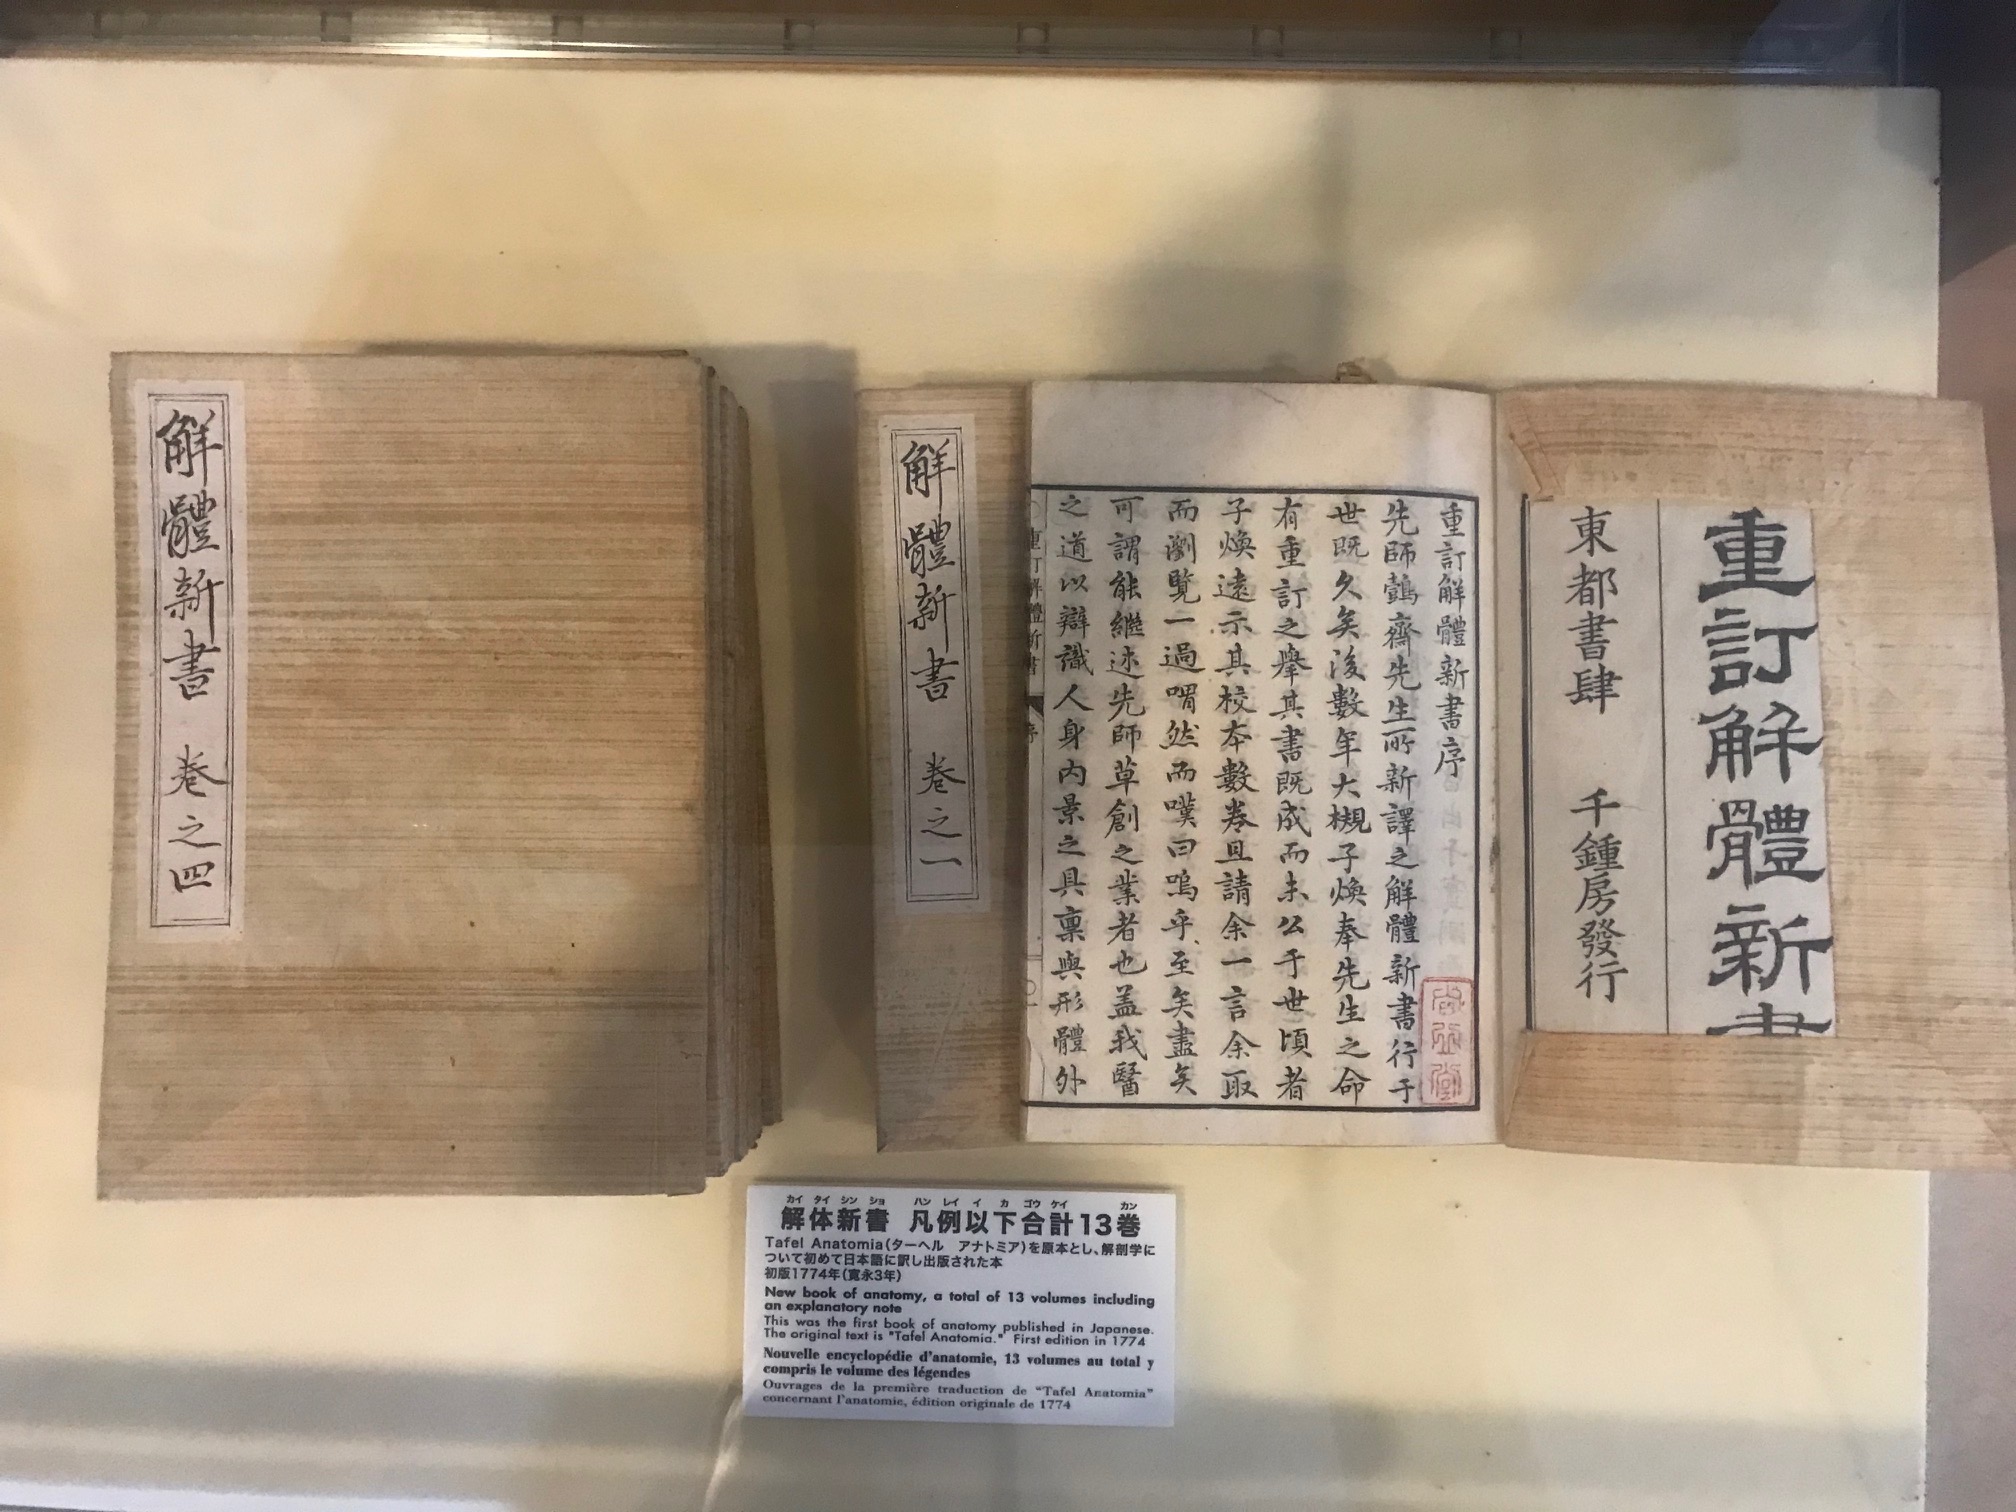 解體新書 卷之四
解體新書 卷之一
重訂解體新書
東都書肆 千鍾房發行
重訂解體新書序
先師鷧齋先生所新譯之解體新書行于
世既久矣後數年大槻子煥奉先生之命
有重訂之擧其書既成而未公于世頃者
子煥遠示其校本數卷且請余一言余取
而瀏覽一過喟然而嘆曰嗚乎至矣盡矣
可謂能繼述先師草創之業者也蓋我醫
之道以辯識人身内景之具稟與形體外
重訂解體新書 序
カイ タイ シン ショ ハン レイ イ カ ゴウ ケイ カン
解体新書 凡例以下合計13巻
Tafel Anatomia(ターヘル アナトミア)を原本とし、解剖学に
ついて初めて日本語に訳し出版された本
初版1774年(寛永3年)
New book of anatomy, a total of 13 volumes including
an explanatory note
This was the first book of anatomy published in Japanese.
The original text is "Tafel Anatomia." First edition in 1774
Nouvelle encyclopédie d'anatomie, 13 volumes au total y
compris le volume des légendes
Ouvrages de la première traduction de "Tafel Anatomia"
concernant l'anatomie, édition originale de 1774